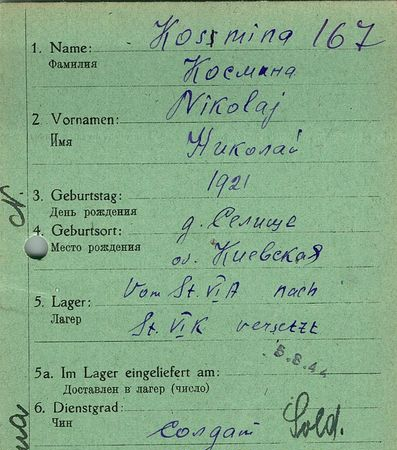 Kossmina 167
1. Name:
Фамилия
Космина
Nikolaj
2. Vornamen:
Имя
Николай
1921
3. Geburtstag:
День рождения
д. Селище
4. Geburtsort:
Место рождения
об. Киевская
Vom St. VI A nach
5. Lager:
Лагерь
St. VI K versetzt
5.8.44
5a. Im Lager eingeliefert am:
Доставлен в лагерь (число)
6. Dienstgrad:
Чин
Солдат
Sold.